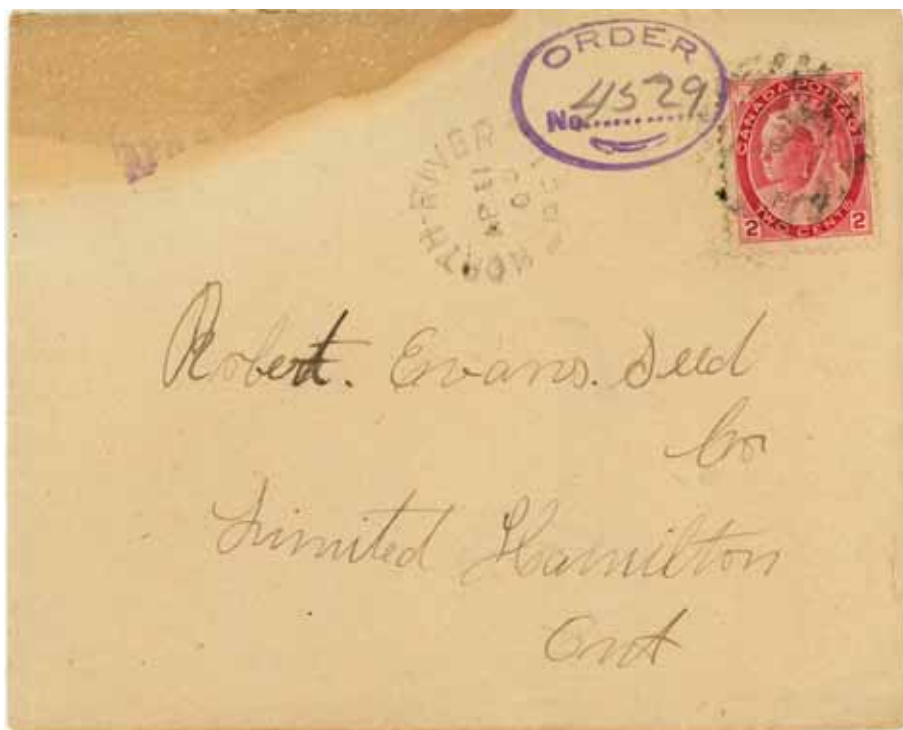 ORDER
No. 4529
NORTH-RIVER
AP 13
CANADA POSTAGE
TWO CENTS
2 2
Robert. Evans. Seed
Co
Limited Hamilton
Ont